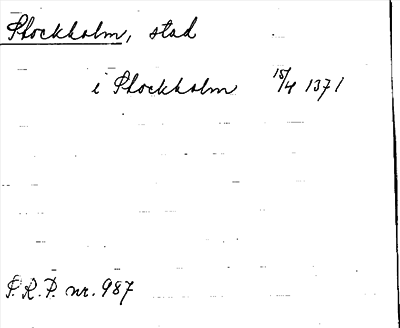 Stockholm, stad
i Stockholm 15/4 1371
P.R.P. nr. 987